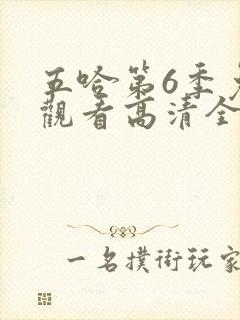 五哈第6季
觀看高清全
一名撲街玩家